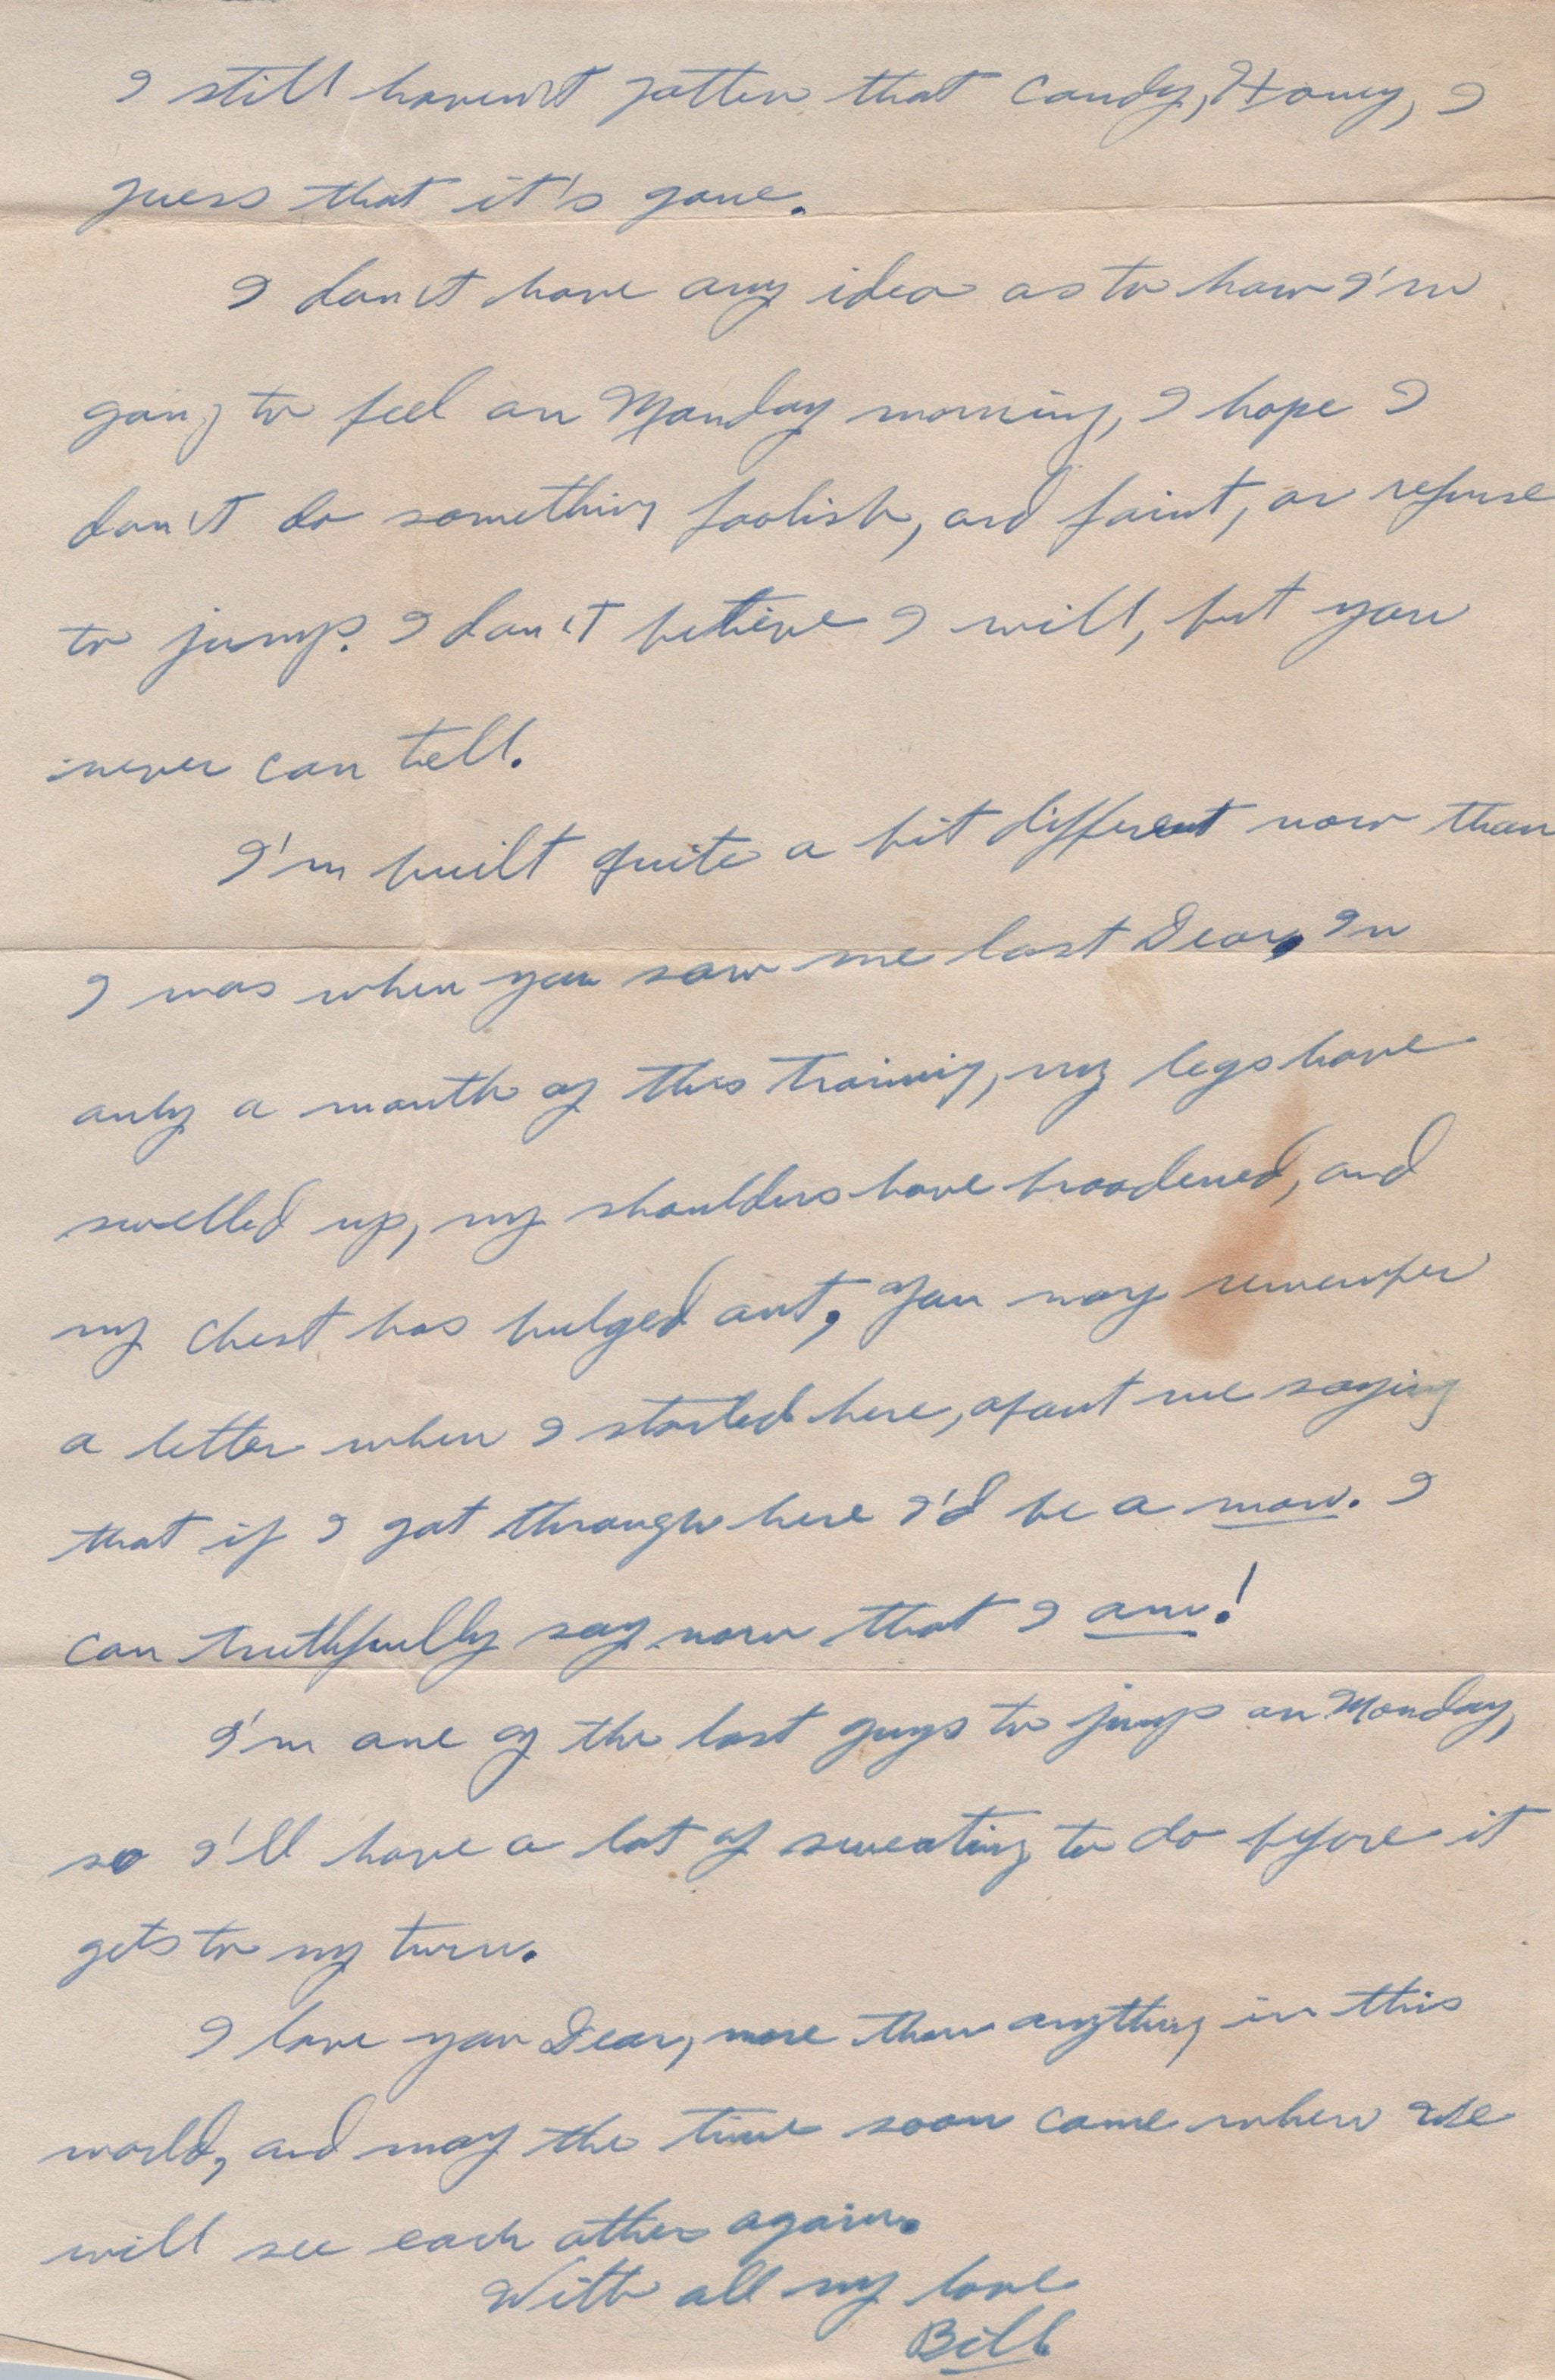 I still haven't gotten that candy, Honey, I
guess that it's gone.
I don't have any idea as to how I'm
going to feel on Monday morning, I hope I
don't do something foolish, and faint, or refuse
to jump. I don't believe I will, but you
never can tell.
I'm built quite a bit different now than
I was when you saw me last Dear, In
only a month of this training, my legs have
swelled up, my shoulders have broadened, and
my chest has bulged out, You may remember
a letter when I started here, about me saying
that if I got through here I'd be a man. I
can truthfully say now that I am!
I'm one of the last guys to jump on Monday,
so I'll have a lot of sweating to do before it
gets to my turn.
I love you Dear, more than anything in this
world, and may the time soon come when we
will see each other again.
With all my love
Bill